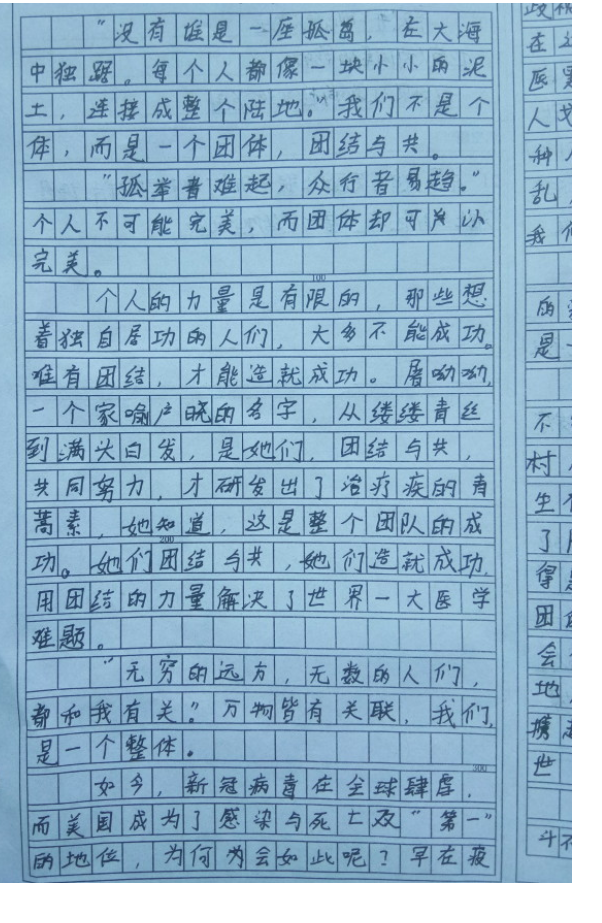 “没有谁是一座孤岛，在大海
中独踞。每个人都像一块小小的泥
土，连接成整个陆地。”我们不是个
体，而是一个团体，团结与共。
“孤举者难起，众行者易趋。”
个人不可能完美，而团体却可以
完美。
100
个人的力量是有限的，那些想
着独自居功的人们，大多不能成功。
唯有团结，才能造就成功。屠呦呦，
一个家喻户晓的名字，从缕缕青丝
到满头白发，是她们，团结与共，
共同努力，才研发出了治疗疾的青
蒿素，她知道，这是整个团队的成
200
功。她们团结与共，她们造就成功，
用团结的力量解决了世界一大医学
难题。
“无穷的远方，无数的人们，
都和我有关。”万物皆有关联，我们，
是一个整体。
300
如今，新冠病毒在全球肆虐，
而美国成为了感染与死亡双“第一”
的地位，为何为会如此呢？早在疫
在
医
人
种
乱
我
的
是
不
村
生
了
得
团
会
地
携
世
斗